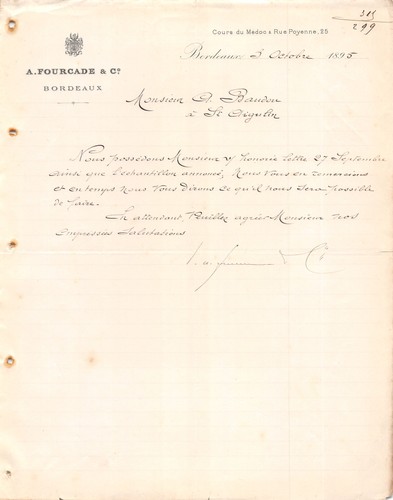 Cours du Médoc & Rue Poyenne, 25
315
299
A. FOURCADE & Cº
BORDEAUX
Bordeaux 3 Octobre 1895
Monsieur Baudou
à St
Nous possédons Monsieur v/ honorée lettre 27 Septembre
ainsi que l'échantillon annoncé, Nous vous en remercions
et en temps Nous vous dirons ce qu'il nous sera possible
de faire.
En attendant Veuillez agréer Monsieur nos
Empressées Salutations
& Cº